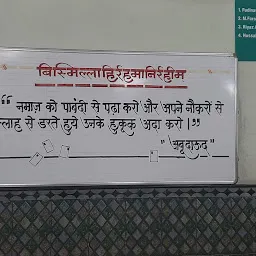 बिस्मिल्लाहिर्रहमानिर्रहीम
“ नमाज़ को पाबंदी से पढ़ा करो और अपने नौकरों से
ल्लाह से डरते हुये उनके हुकूक अदा करो।”
"अबू दाऊद"
1.
2. M.
3. Riyaz
4.